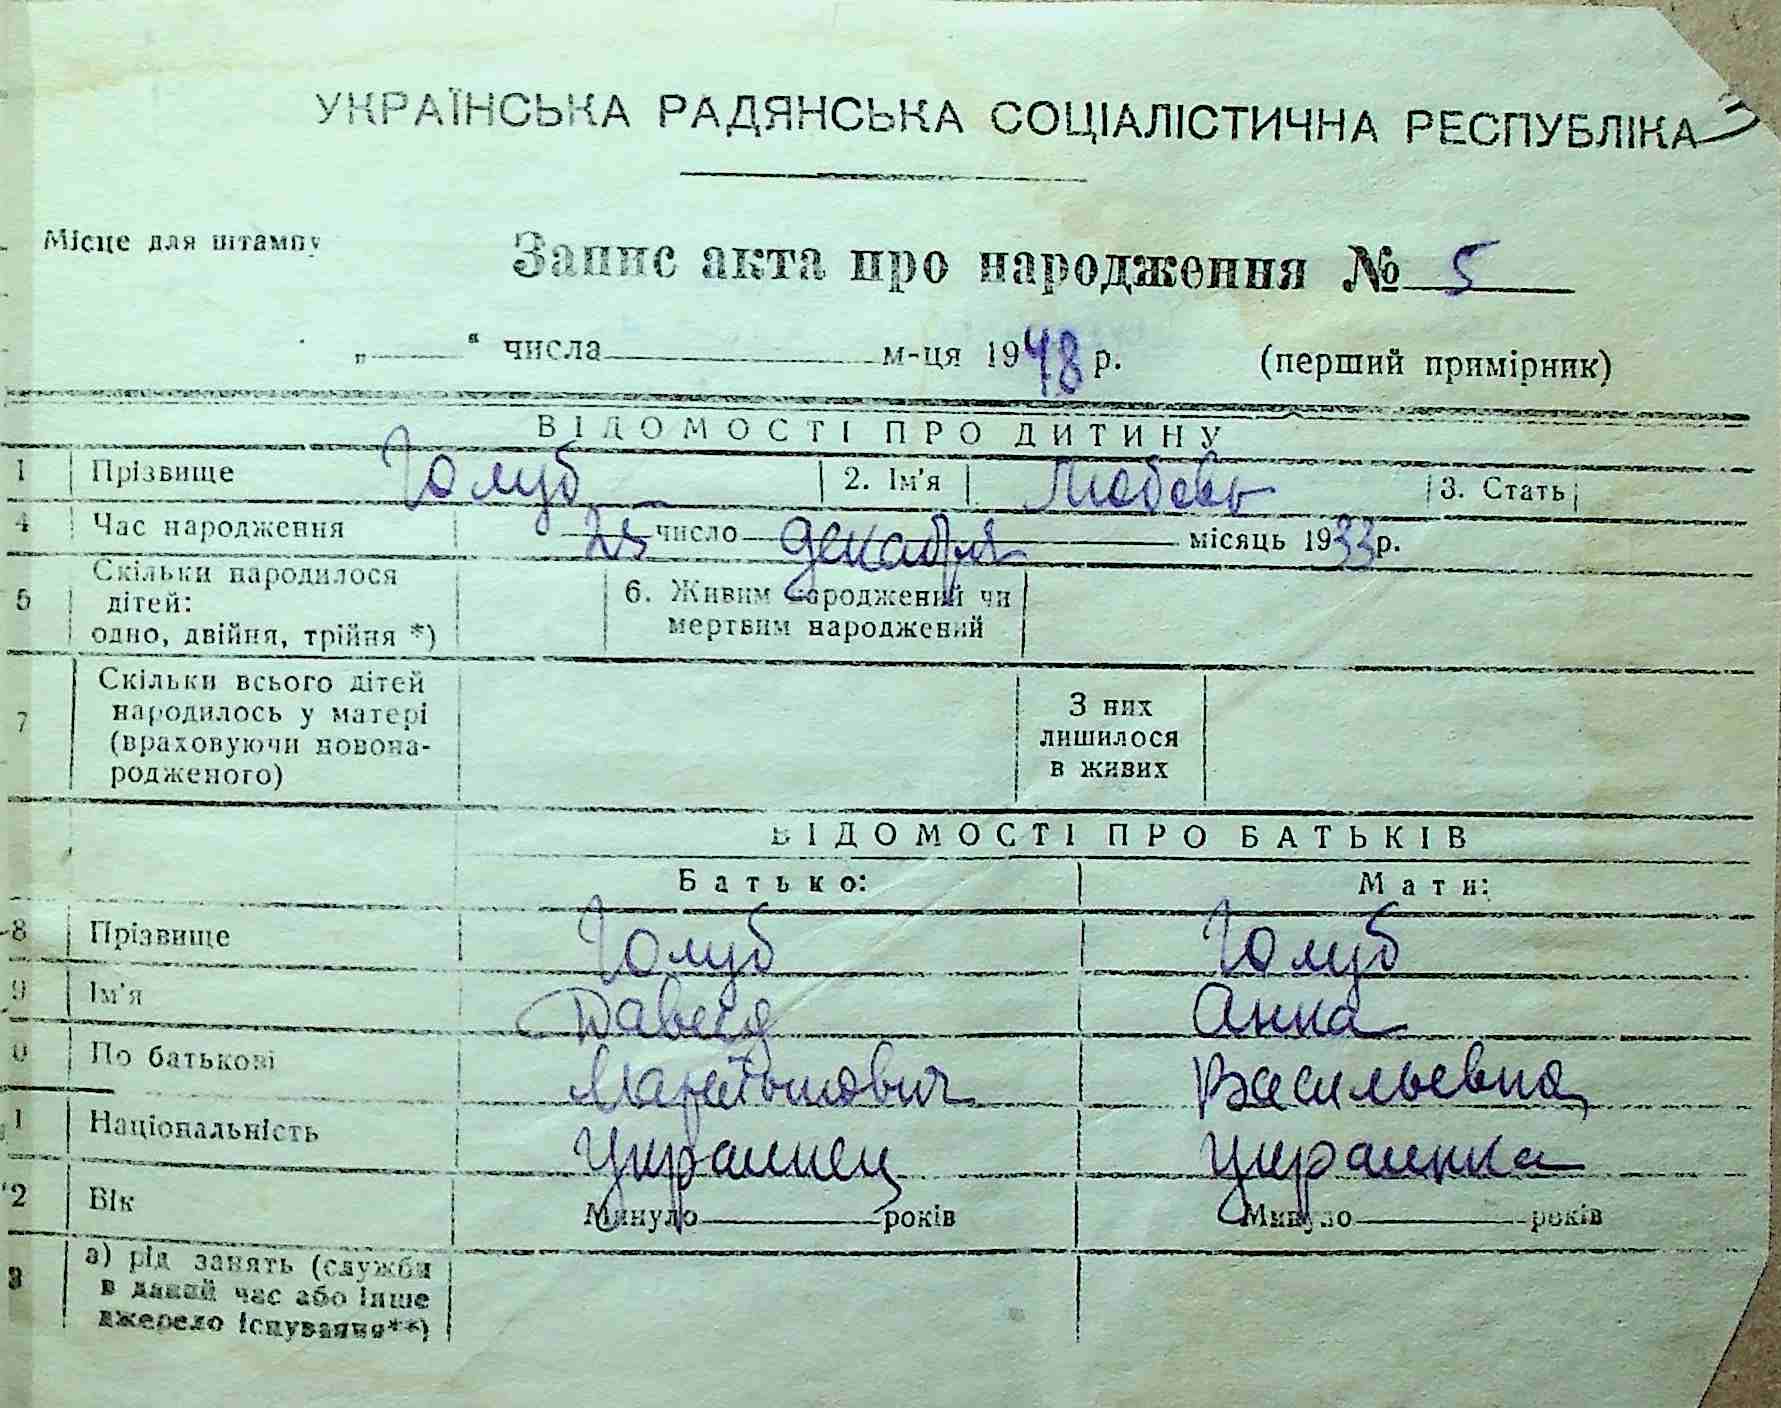 УКРАЇНСЬКА РАДЯНСЬКА СОЦІАЛІСТИЧНА РЕСПУБЛІКА
Місце для штампу
Запис акта про народження № 5
„ “ числа м-ця 1948 р. (перший примірник)
ВІДОМОСТІ ПРО ДИТИНУ
1 Прізвище Голуб 2. Ім'я Любовь 3. Стать
4 Час народження число декабря місяць 1933 р.
5 Скільки народилося дітей: одно, двійня, трійня *) 6. Живим народжений чи мертвим народжений
7 Скільки всього дітей народилось у матері (враховуючи новона-родженого) З них лишилося в живих
ВІДОМОСТІ ПРО БАТЬКІВ
Батько: Мати:
8 Прізвище Голуб Голуб
9 Ім'я Давид Анна
0 По батькові Мартынович Васильевна
1 Національність Украинец Украинка
2 Вік Минуло років Минуло років
3 а) рід занять (служби в даний час або інше джерело існування**)